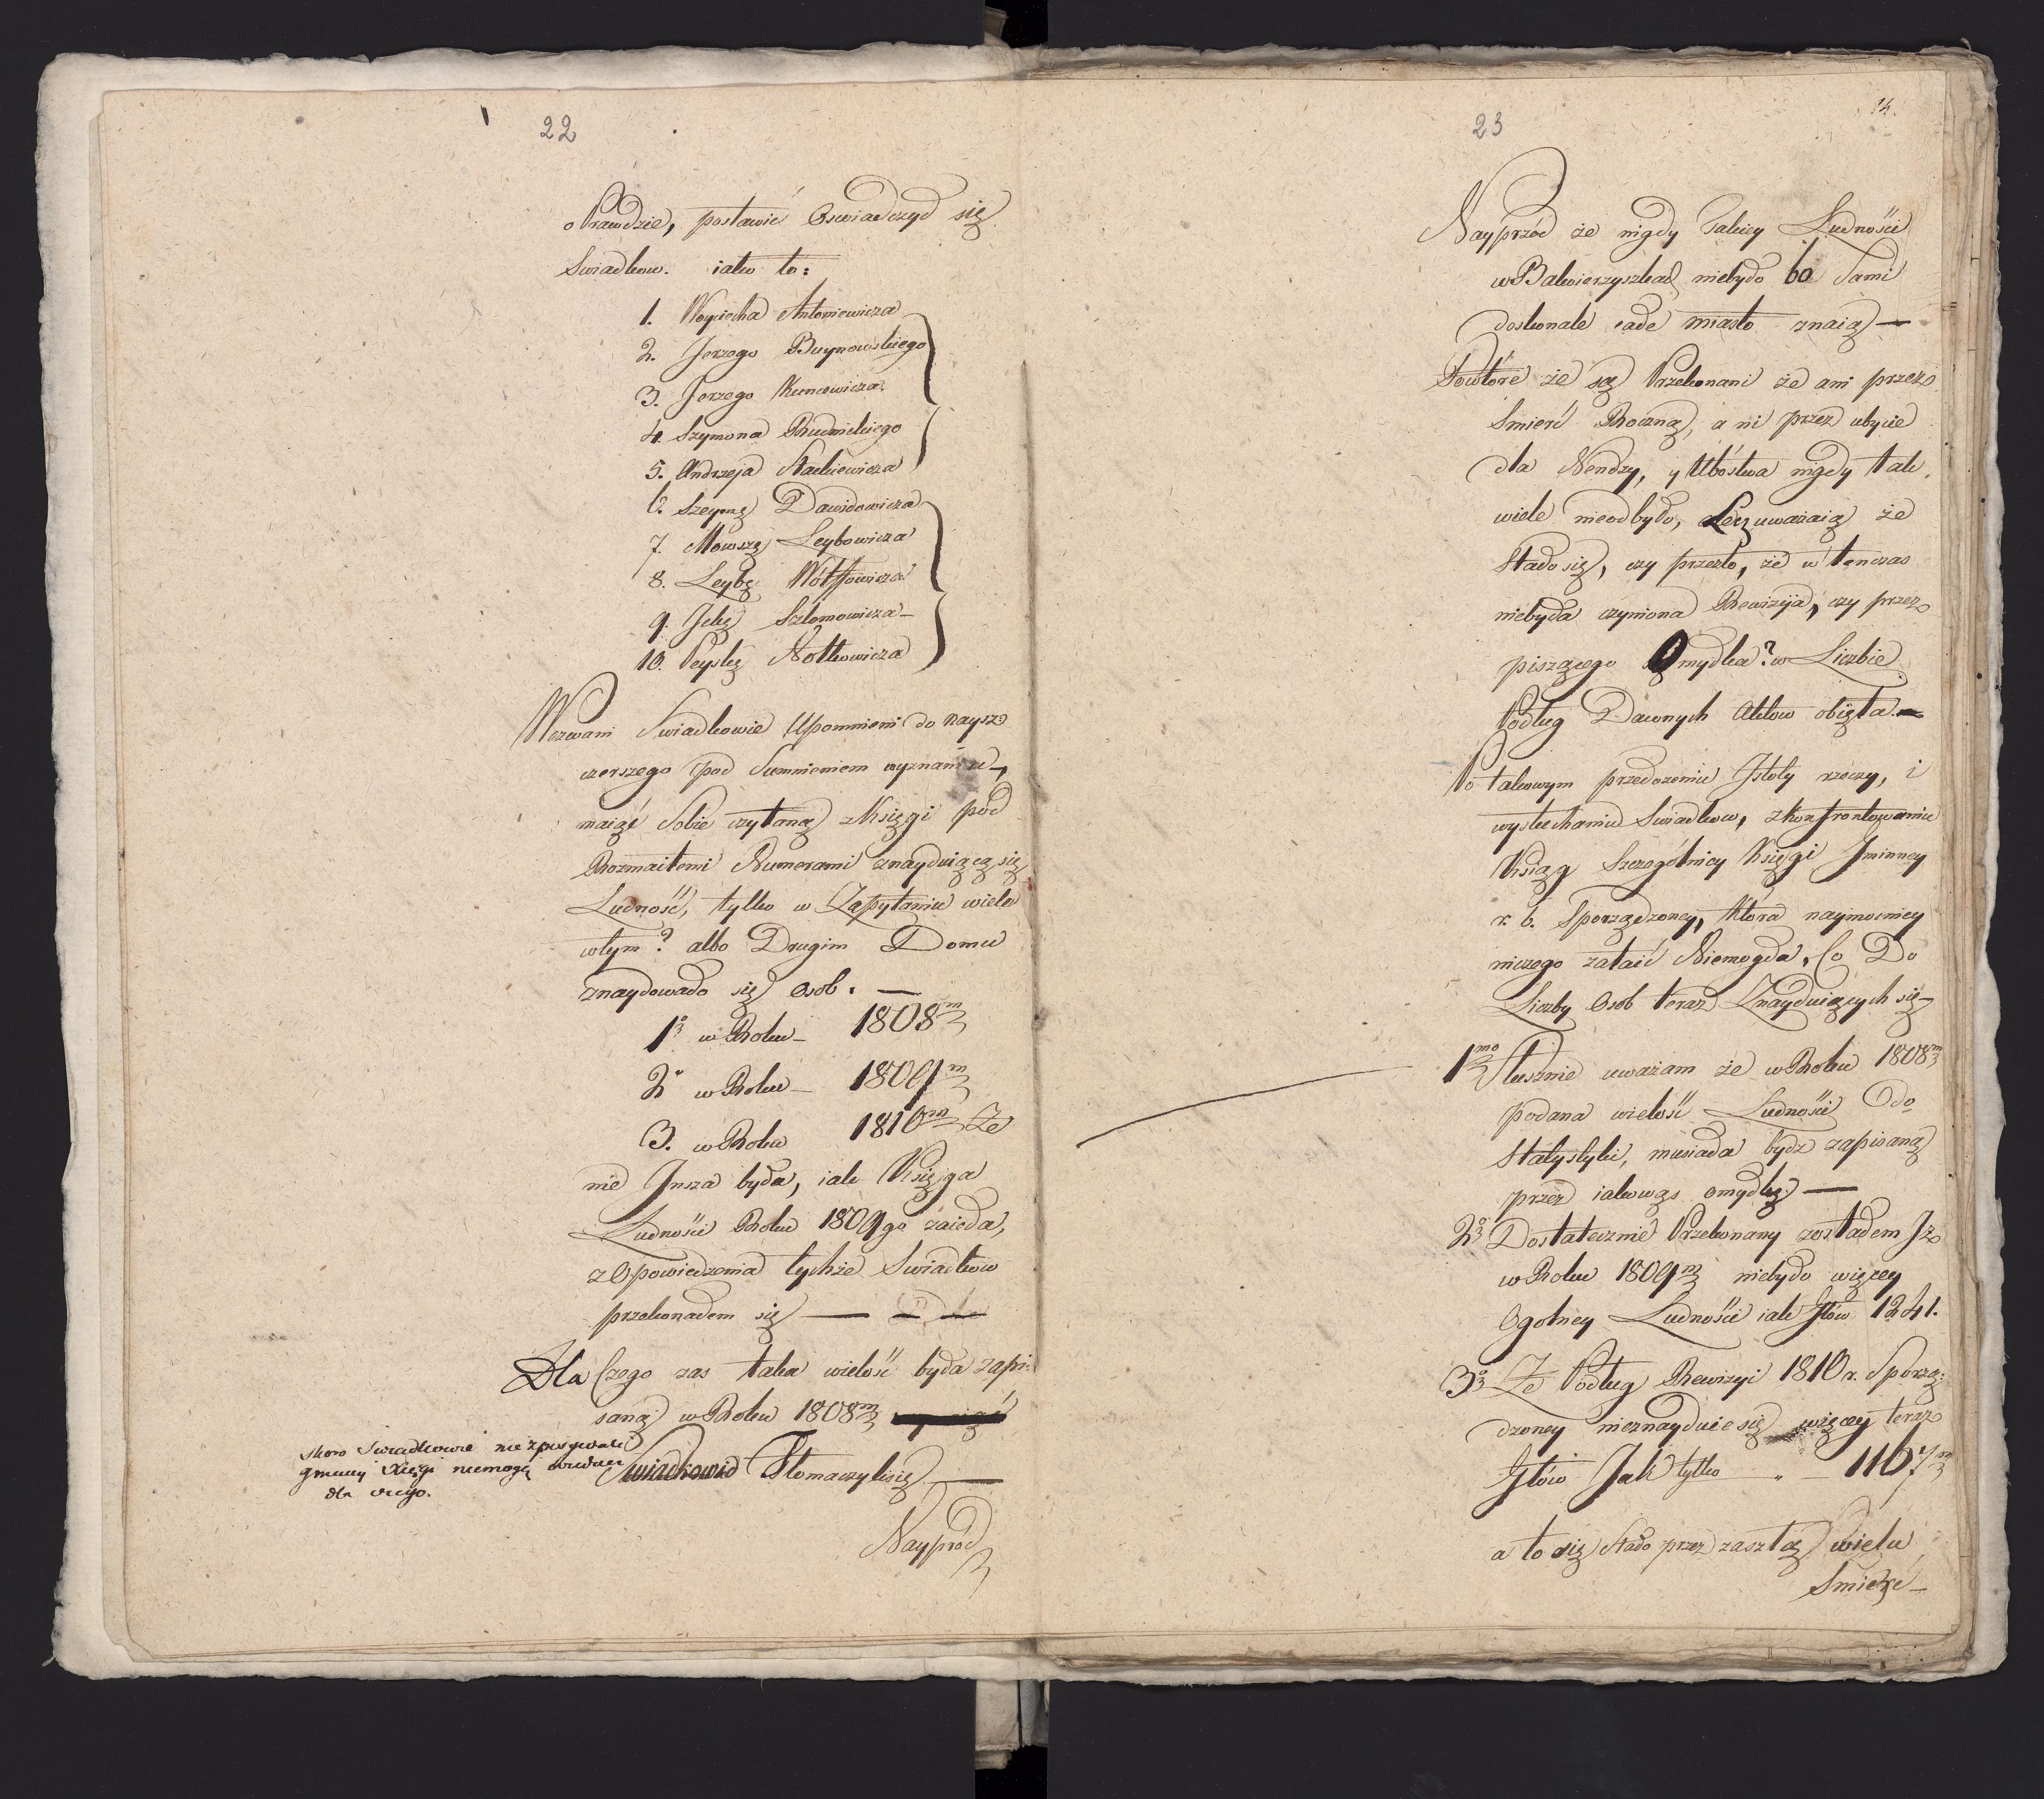 22
o Prawdzie, postawić Oswiadczył się
Swiadkow. iako to:
1. Woyciecha Antoniewicza
2. Jerzego Buynowskiego
3. Jerzego Kuncewicza
4. Szymona Rudnickiego
5. Andrzeja Stackiewicza
6. Szeymę Dawidowicza
7. Mowszę Leybowicza
8. Leybę Wólfowicza
9. Jckę Szlomowicza
10. Peyskę Notkowicza
Wezwani Swiadkowie Upomnieni do naysz
czerszego pod Sumnieniem wyznania,
maiąć Sobie czytaną z Księgi pod
Rozmaitemi Numerami znayduiącą się
Ludność, tylko w Zapytaniu wiele
wtym? albo Drugim Domu
znaydowało się osob. —
1º w Roku — 1808m
2º w Roku — 1809m
3. w Roku 1810m Ze
nie Jnsza była, iak Księga
Ludności Roku 1809go zaięła,
z Opowiedzenia tychże Swiadkow
przekonałem się —
Dla Czego zas taka wielość była zapi-
saną w Roku 1808m
Swiadkowie Tłomaczyli się —
Nayprod
skoro Swiadkowie nie zpisywali
gminy Xięgi niemogą wiedzieć
dla czego.
23
14.
Nayprzód że nigdy Takiey Ludności
w Balwierzyszkach niebyło bo Sami
doskonale całe miasto znaią —
Powtóre że są Przekonani że ani przez
Smierć Roczną, a ni przez ubycie
dla Nendzy, y Ubóstwa nigdy tak
wiele nieodbyło, Lecz uważaią że
Stało się, czy przezto, że w tenczas
niebyła czyniona Rewizyia, czy przez
piszącego Omyłka? w Liczbie
Podług Dawnych Aktow obięta. —
Po takowym przełożeniu Jstoty rzeczy, i
wysłuchaniu Swiadkow, zkonfrontowaniu
Ksiąg Szczególniey Księgi Jminney
r. b. Sporządzoney, Która naymocniey
niczego zataić Niemogła, Co Do
Liczby Osob teraz Znayduiących się —
1mo Słusznie uważam że w Roku 1808m
podana wielość Ludności Do
Statystyki, musiała bydz zapisaną
przez iakowąs omyłkę. —
2º Dostatecznie Przekonany zostałem Jż
w Roku 1809m niebyło więcey
Ogolney Ludności iak Głów 1241.
3º Ze Podług Rewizyi 1810 r. Sporzą-
dzoney nieznayduie się więcey teraz
Głów Jak tylko — 1167m
a to się Stało przez zaszłą wielu
Smierć —